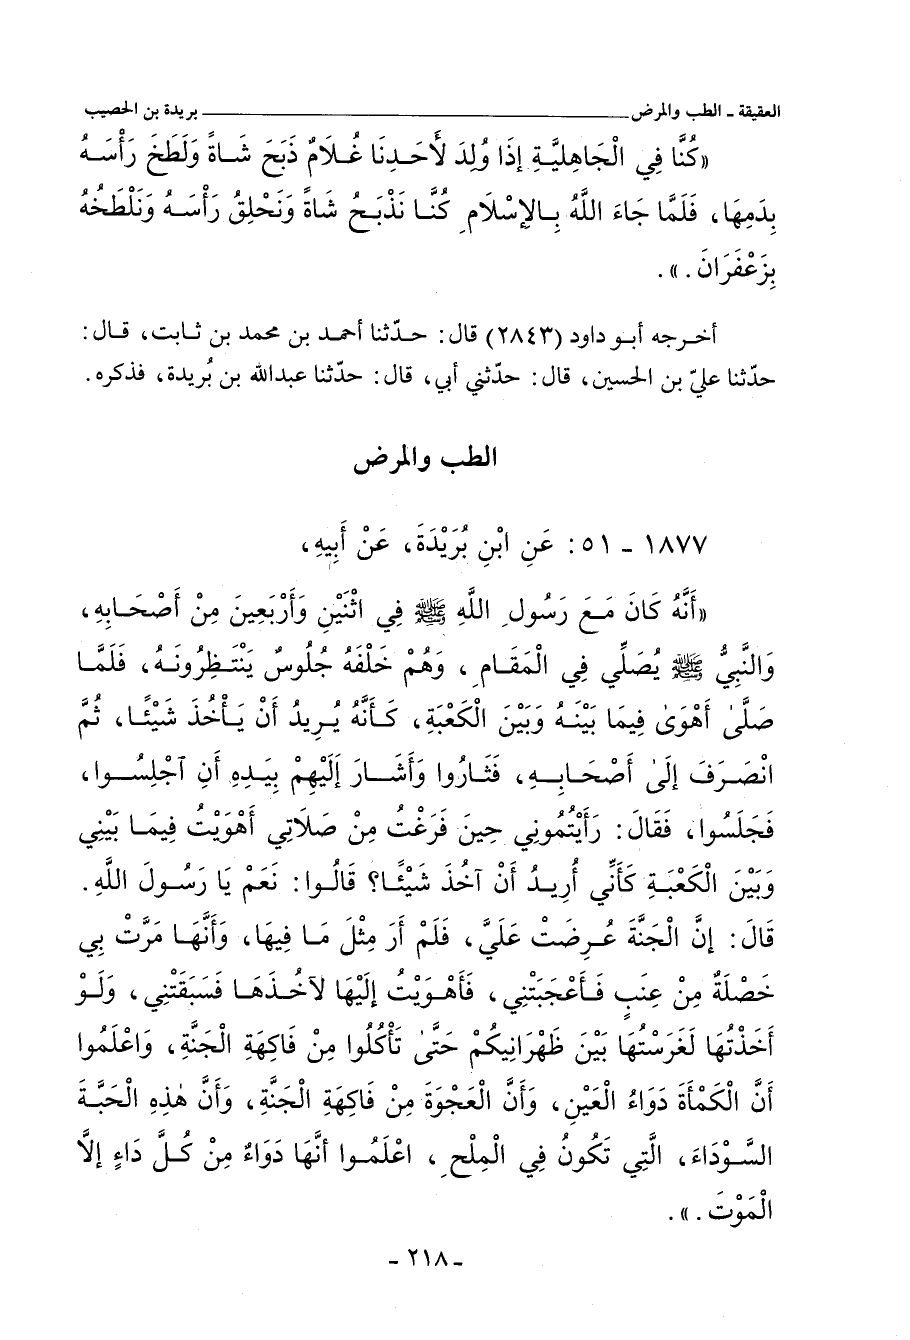 العقيقة - الطب والمرض ـــــــــــــــــ بريدة بن الحصيب
«كُنَّا فِي الْجَاهِلِيَّةِ إِذَا وُلِدَ لأَحَدِنَا غُلَامٌ ذَبَحَ شَاةً وَلَطَخَ رَأْسَهُ
بِدَمِهَا، فَلَمَّا جَاءَ اللَّهُ بِالإِسْلَامِ كُنَّا نَذْبَحُ شَاةً وَنَحْلِقُ رَأْسَهُ وَنَلْطَخُهُ
بِزَعْفَرَانَ.».
أخرجه أبو داود (٢٨٤٣) قال: حدّثنا أحمد بن محمد بن ثابت، قال:
حدّثنا عليّ بن الحسين، قال: حدّثني أبي، قال: حدّثنا عبدالله بن بُريدة، فذكره.
الطب والمرض
١٨٧٧ - ٥١: عَنِ ابْنِ بُرَيْدَةَ، عَنْ أَبِيهِ،
«أَنَّهُ كَانَ مَعَ رَسُولِ اللَّهِ ﷺ فِي اثْنَيْنِ وَأَرْبَعِينَ مِنْ أَصْحَابِهِ،
وَالنَّبِيُّ ﷺ يُصَلِّي فِي الْمَقَامِ، وَهُمْ خَلْفَهُ جُلُوسٌ يَنْتَظِرُونَهُ، فَلَمَّا
صَلَّىٰ أَهْوَىٰ فِيمَا بَيْنَهُ وَبَيْنَ الْكَعْبَةِ، كَأَنَّهُ يُرِيدُ أَنْ يَأْخُذَ شَيْئًا، ثُمَّ
انْصَرَفَ إِلَىٰ أَصْحَابِهِ، فَثَارُوا وَأَشَارَ إِلَيْهِمْ بِيَدِهِ أَنِ آجْلِسُوا،
فَجَلَسُوا، فَقَالَ: رَأَيْتُمُونِي حِينَ فَرَغْتُ مِنْ صَلَاتِي أَهْوَيْتُ فِيمَا بَيْنِي
وَبَيْنَ الْكَعْبَةِ كَأَنِّي أُرِيدُ أَنْ آخُذَ شَيْئًا؟ قَالُوا: نَعَمْ يَا رَسُولَ اللَّهِ.
قَالَ: إِنَّ الْجَنَّةَ عُرِضَتْ عَلَيَّ، فَلَمْ أَرَ مِثْلَ مَا فِيهَا، وَأَنَّهَا مَرَّتْ بِي
خَصْلَةٌ مِنْ عِنَبٍ فَأَعْجَبَتْنِي، فَأَهْوَيْتُ إِلَيْهَا لآخُذَهَا فَسَبَقَتْنِي، وَلَوْ
أَخَذْتُهَا لَغَرَسْتُهَا بَيْنَ ظَهْرَانِيكُمْ حَتَّىٰ تَأْكُلُوا مِنْ فَاكِهَةِ الْجَنَّةِ، وَاعْلَمُوا
أَنَّ الْكَمْأَةَ دَوَاءُ الْعَيْنِ، وَأَنَّ الْعَجْوَةَ مِنْ فَاكِهَةِ الْجَنَّةِ، وَأَنَّ هٰذِهِ الْحَبَّةَ
السَّوْدَاءَ، الَّتِي تَكُونُ فِي الْمِلْحِ، اعْلَمُوا أَنَّهَا دَوَاءٌ مِنْ كُلِّ دَاءٍ إِلَّا
الْمَوْتَ.».
- ٢١٨ -